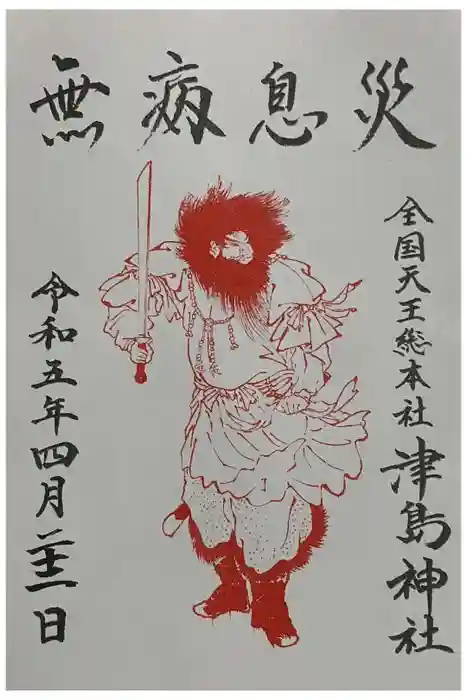 無病息災
全国天王総本社 津島神社
令和五年四月 日